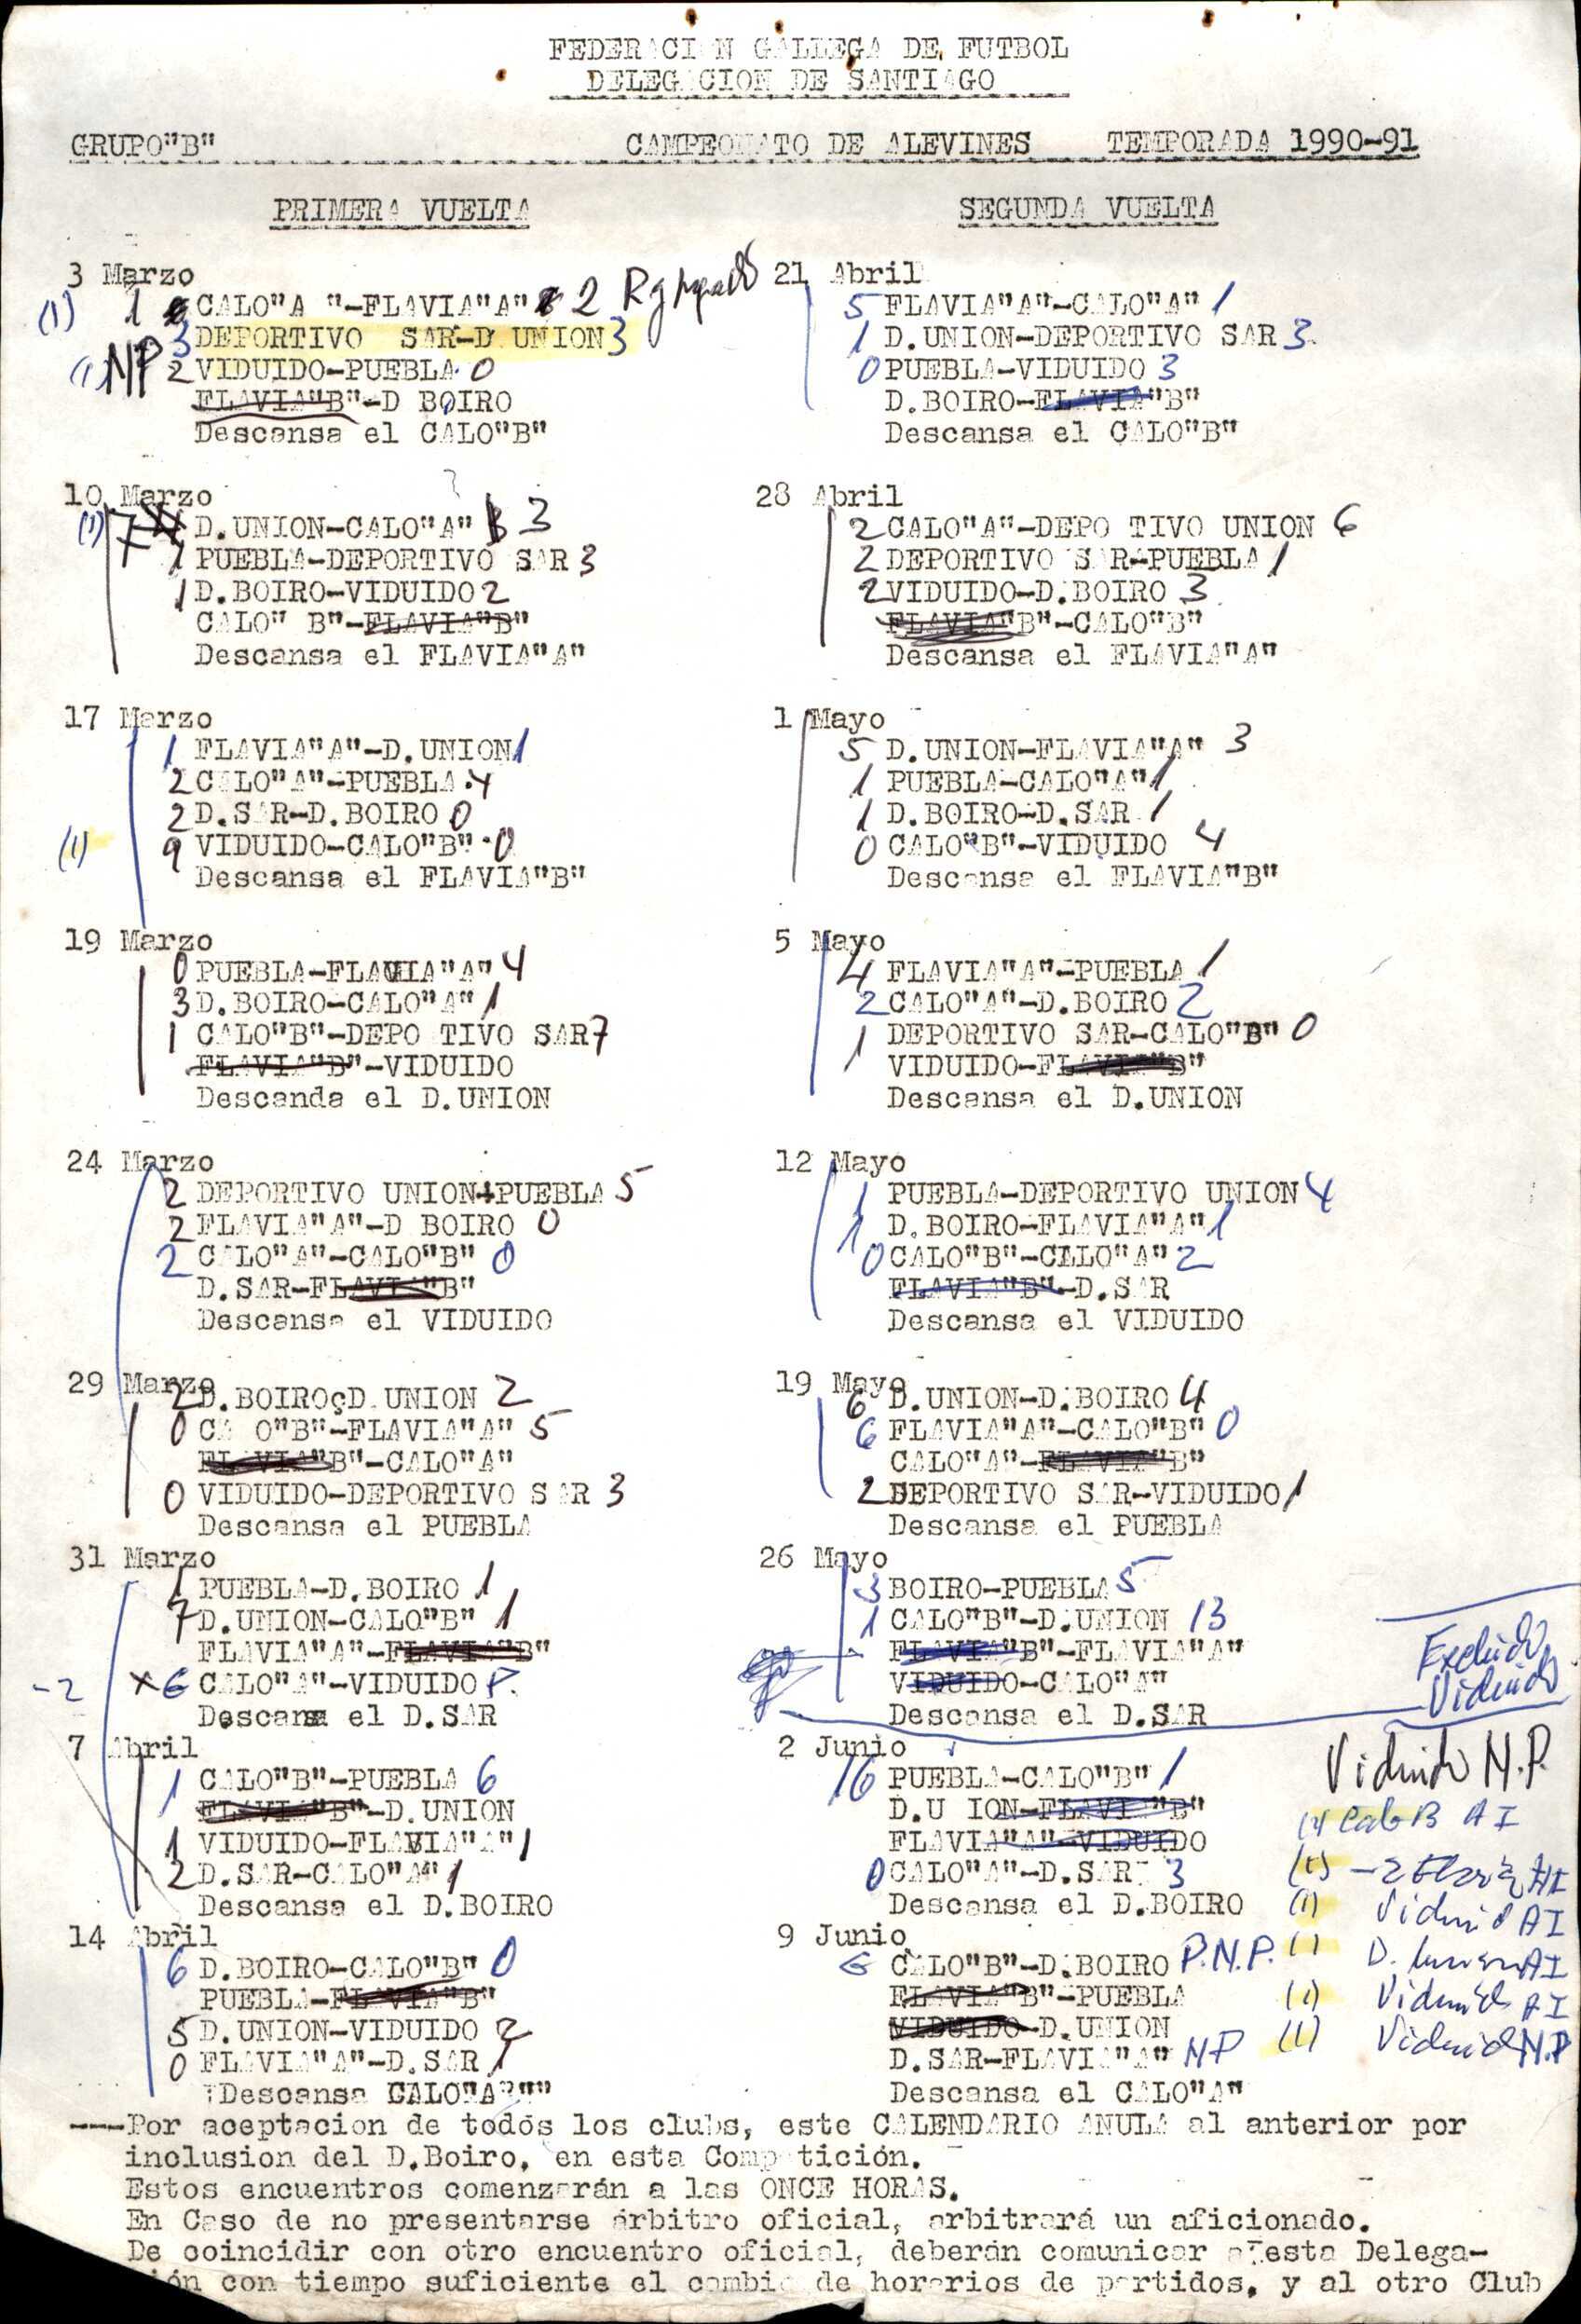 FEDERACION GALLEGA DE FUTBOL
DELEGACION DE SANTIAGO
GRUPO"B" CAMPEONATO DE ALEVINES TEMPORADA 1990-91
PRIMERA VUELTA
3 Marzo
(1) 1 CALO"A "-FLAVIA"A" 2
3 DEPORTIVO SAR-D UNION 3
(1) NP 2 VIDUIDO-PUEBLA 0
FLAVIA"B"-D BOIRO
Descansa el CALO"B"
10 Marzo
(1) 7 D.UNION-CALO"A" 3
1 PUEBLA-DEPORTIVO SAR 3
1 D.BOIRO-VIDUIDO 2
CALO" B"-FLAVIA"B"
Descansa el FLAVIA"A"
17 Marzo
1 FLAVIA"A"-D.UNION 1
2 CALO"A"-PUEBLA 4
2 D.SAR-D.BOIRO 0
(1) 9 VIDUIDO-CALO"B" 0
Descansa el FLAVIA"B"
19 Marzo
0 PUEBLA-FLAVIA"A" 4
3 D.BOIRO-CALO"A" 1
1 CALO"B"-DEPO TIVO SAR 7
FLAVIA"B"-VIDUIDO
Descanda el D.UNION
24 Marzo
2 DEPORTIVO UNION-PUEBLA 5
2 FLAVIA"A"-D BOIRO 0
2 CALO"A"-CALO"B" 0
D.SAR-FLAVIA"B"
Descansa el VIDUIDO
29 Marzo
2 D.BOIROçD.UNION 2
0 CA O"B"-FLAVIA"A" 5
FLAVIA"B"-CALO"A"
0 VIDUIDO-DEPORTIVO SAR 3
Descansa el PUEBLA
31 Marzo
1 PUEBLA-D.BOIRO 1
7 D.UNION-CALO"B" 1
FLAVIA"A"-FLAVIA"B"
-2 x 6 CALO"A"-VIDUIDO P.
Descansa el D.SAR
7 Abril
1 CALO"B"-PUEBLA 6
FLAVIA"B"-D.UNION
1 VIDUIDO-FLAVIA"A" 1
2 D.SAR-CALO"A" 1
Descansa el D.BOIRO
14 Abril
6 D.BOIRO-CALO"B" 0
PUEBLA-FLAVIA"B"
5 D.UNION-VIDUIDO 2
0 FLAVIA"A"-D.SAR 1
Descansa CALO"A"
SEGUNDA VUELTA
21 Abril
5 FLAVIA"A"-CALO"A" 1
1 D.UNION-DEPORTIVO SAR 3
0 PUEBLA-VIDUIDO 3
D.BOIRO-FLAVIA"B"
Descansa el CALO"B"
28 Abril
2 CALO"A"-DEPO TIVO UNION 6
2 DEPORTIVO SAR-PUEBLA 1
2 VIDUIDO-D.BOIRO 3
FLAVIA"B"-CALO"B"
Descansa el FLAVIA"A"
1 Mayo
5 D.UNION-FLAVIA"A" 3
1 PUEBLA-CALO"A" 1
1 D.BOIRO-D.SAR 1
0 CALO"B"-VIDUIDO 4
Descansa el FLAVIA"B"
5 Mayo
4 FLAVIA"A"-PUEBLA 1
2 CALO"A"-D.BOIRO 2
1 DEPORTIVO SAR-CALO"B" 0
VIDUIDO-FLAVIA"B"
Descansa el D.UNION
12 Mayo
1 PUEBLA-DEPORTIVO UNION 4
1 D.BOIRO-FLAVIA"A" 1
0 CALO"B"-CALO"A" 2
FLAVIA"B"-D.SAR
Descansa el VIDUIDO
19 Mayo
6 D.UNION-D.BOIRO 4
6 FLAVIA"A"-CALO"B" 0
CALO"A"-FLAVIA"B"
2 DEPORTIVO SAR-VIDUIDO 1
Descansa el PUEBLA
26 Mayo
3 BOIRO-PUEBLA 5
1 CALO"B"-D.UNION 13
FLAVIA"B"-FLAVIA"A"
VIDUIDO-CALO"A"
Descansa el D.SAR
Excluido
Viduido
2 Junio
16 PUEBLA-CALO"B" 1
D.U ION-FLAVIA"B"
FLAVIA"A"-VIDUIDO
0 CALO"A"-D.SAR 3
Descansa el D.BOIRO
9 Junio
6 CALO"B"-D.BOIRO P.N.P.
FLAVIA"B"-PUEBLA
VIDUIDO-D.UNION
D.SAR-FLAVIA"A" NP
Descansa el CALO"A"
Viduido N.P.
(1) Calo B AI
(1) -2 Flavia AI
(1) Viduido AI
(1) D. Union AI
(1) Viduido AI
(1) Viduido N.P
---Por aceptacion de todos los clubs, este CALENDARIO ANULA al anterior por
inclusion del D.Boiro, en esta Competición.
Estos encuentros comenzarán a las ONCE HORAS.
En Caso de no presentarse árbitro oficial, arbitrará un aficionado.
De coincidir con otro encuentro oficial, deberán comunicar a esta Delega-
ión con tiempo suficiente el cambio de horarios de partidos, y al otro Club